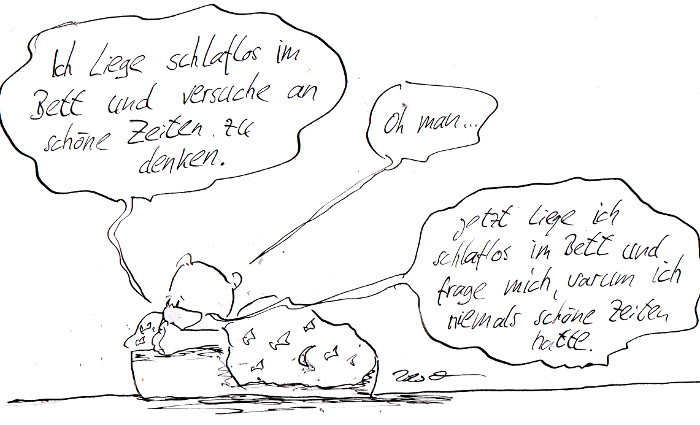 Ich liege schlaflos im
Bett und versuche an
schöne Zeiten zu
denken.
Oh man...
Jetzt liege ich
schlaflos im Bett und
frage mich, warum ich
niemals schöne Zeiten
hatte.